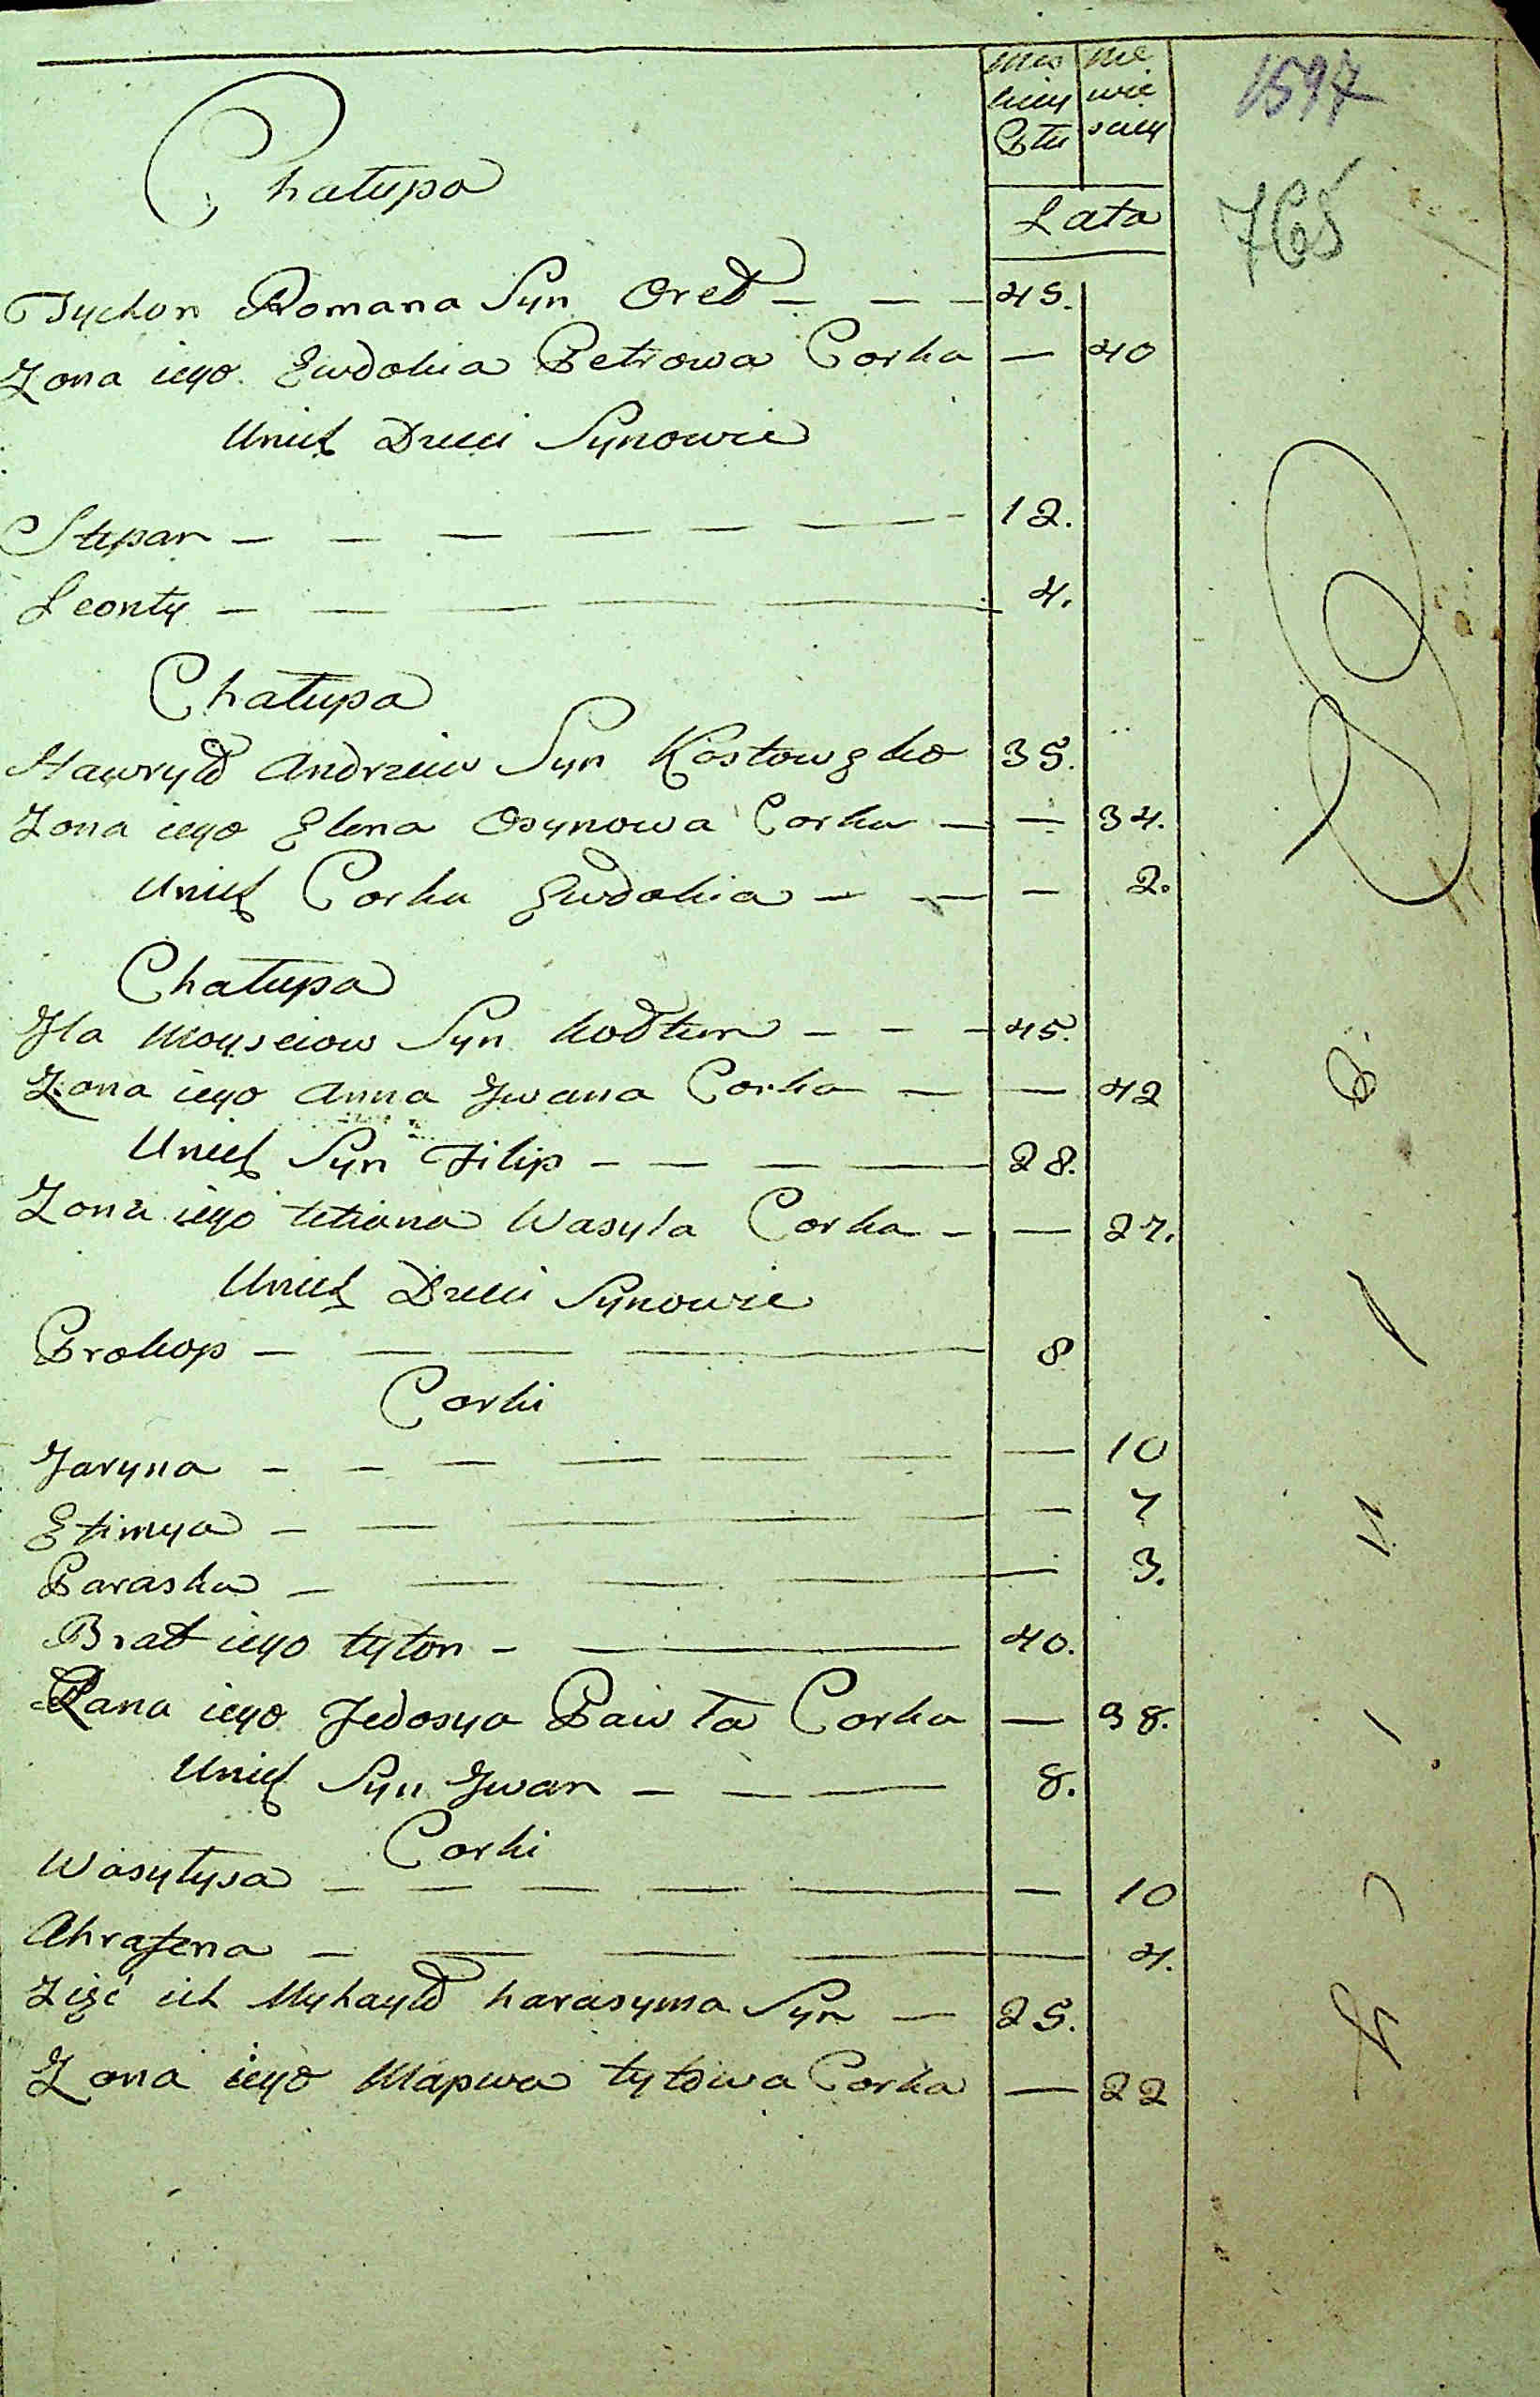 Męs Nie
kiey wie
Płu sciey
Lata
1597
765
Chałupa
Tychon Romana Syn Oreł — — — 45.
Zona iego Ewdokia Petrowa Corka — 40
Unich Dzieci Synowie
Stepan — — — 12.
Leonty — — — 4.
Chałupa
Hawryło Andrzeiow Syn 35.
Zona iego Elena Osypowa Corka — — 34.
Unich Corka Ewdokia — — — 2.
Chałupa
Jla Moyseiow Syn — — — 45.
Zona iego Anna Jwana Corka — — 42
Unich Syn Filip — — — 28.
Zona iego tetiana Wasyla Corka — — 27.
Unich Dzieci Synowie
Prokop — — — 8
Corki
Jaryna — — — 10
Efimya — — — 7
Paraska — — — 3.
Brat iego tyton — — 40.
Zona iego Fedosya Pawła Corka — 38.
Unich Syn Jwan — — — 8.
Corki
Wasyłysa — — — 10
Ahrafena — — — 4.
Zięć ich Myhayło harasyma Syn — 25.
Zona iego tytowa Corka — 22